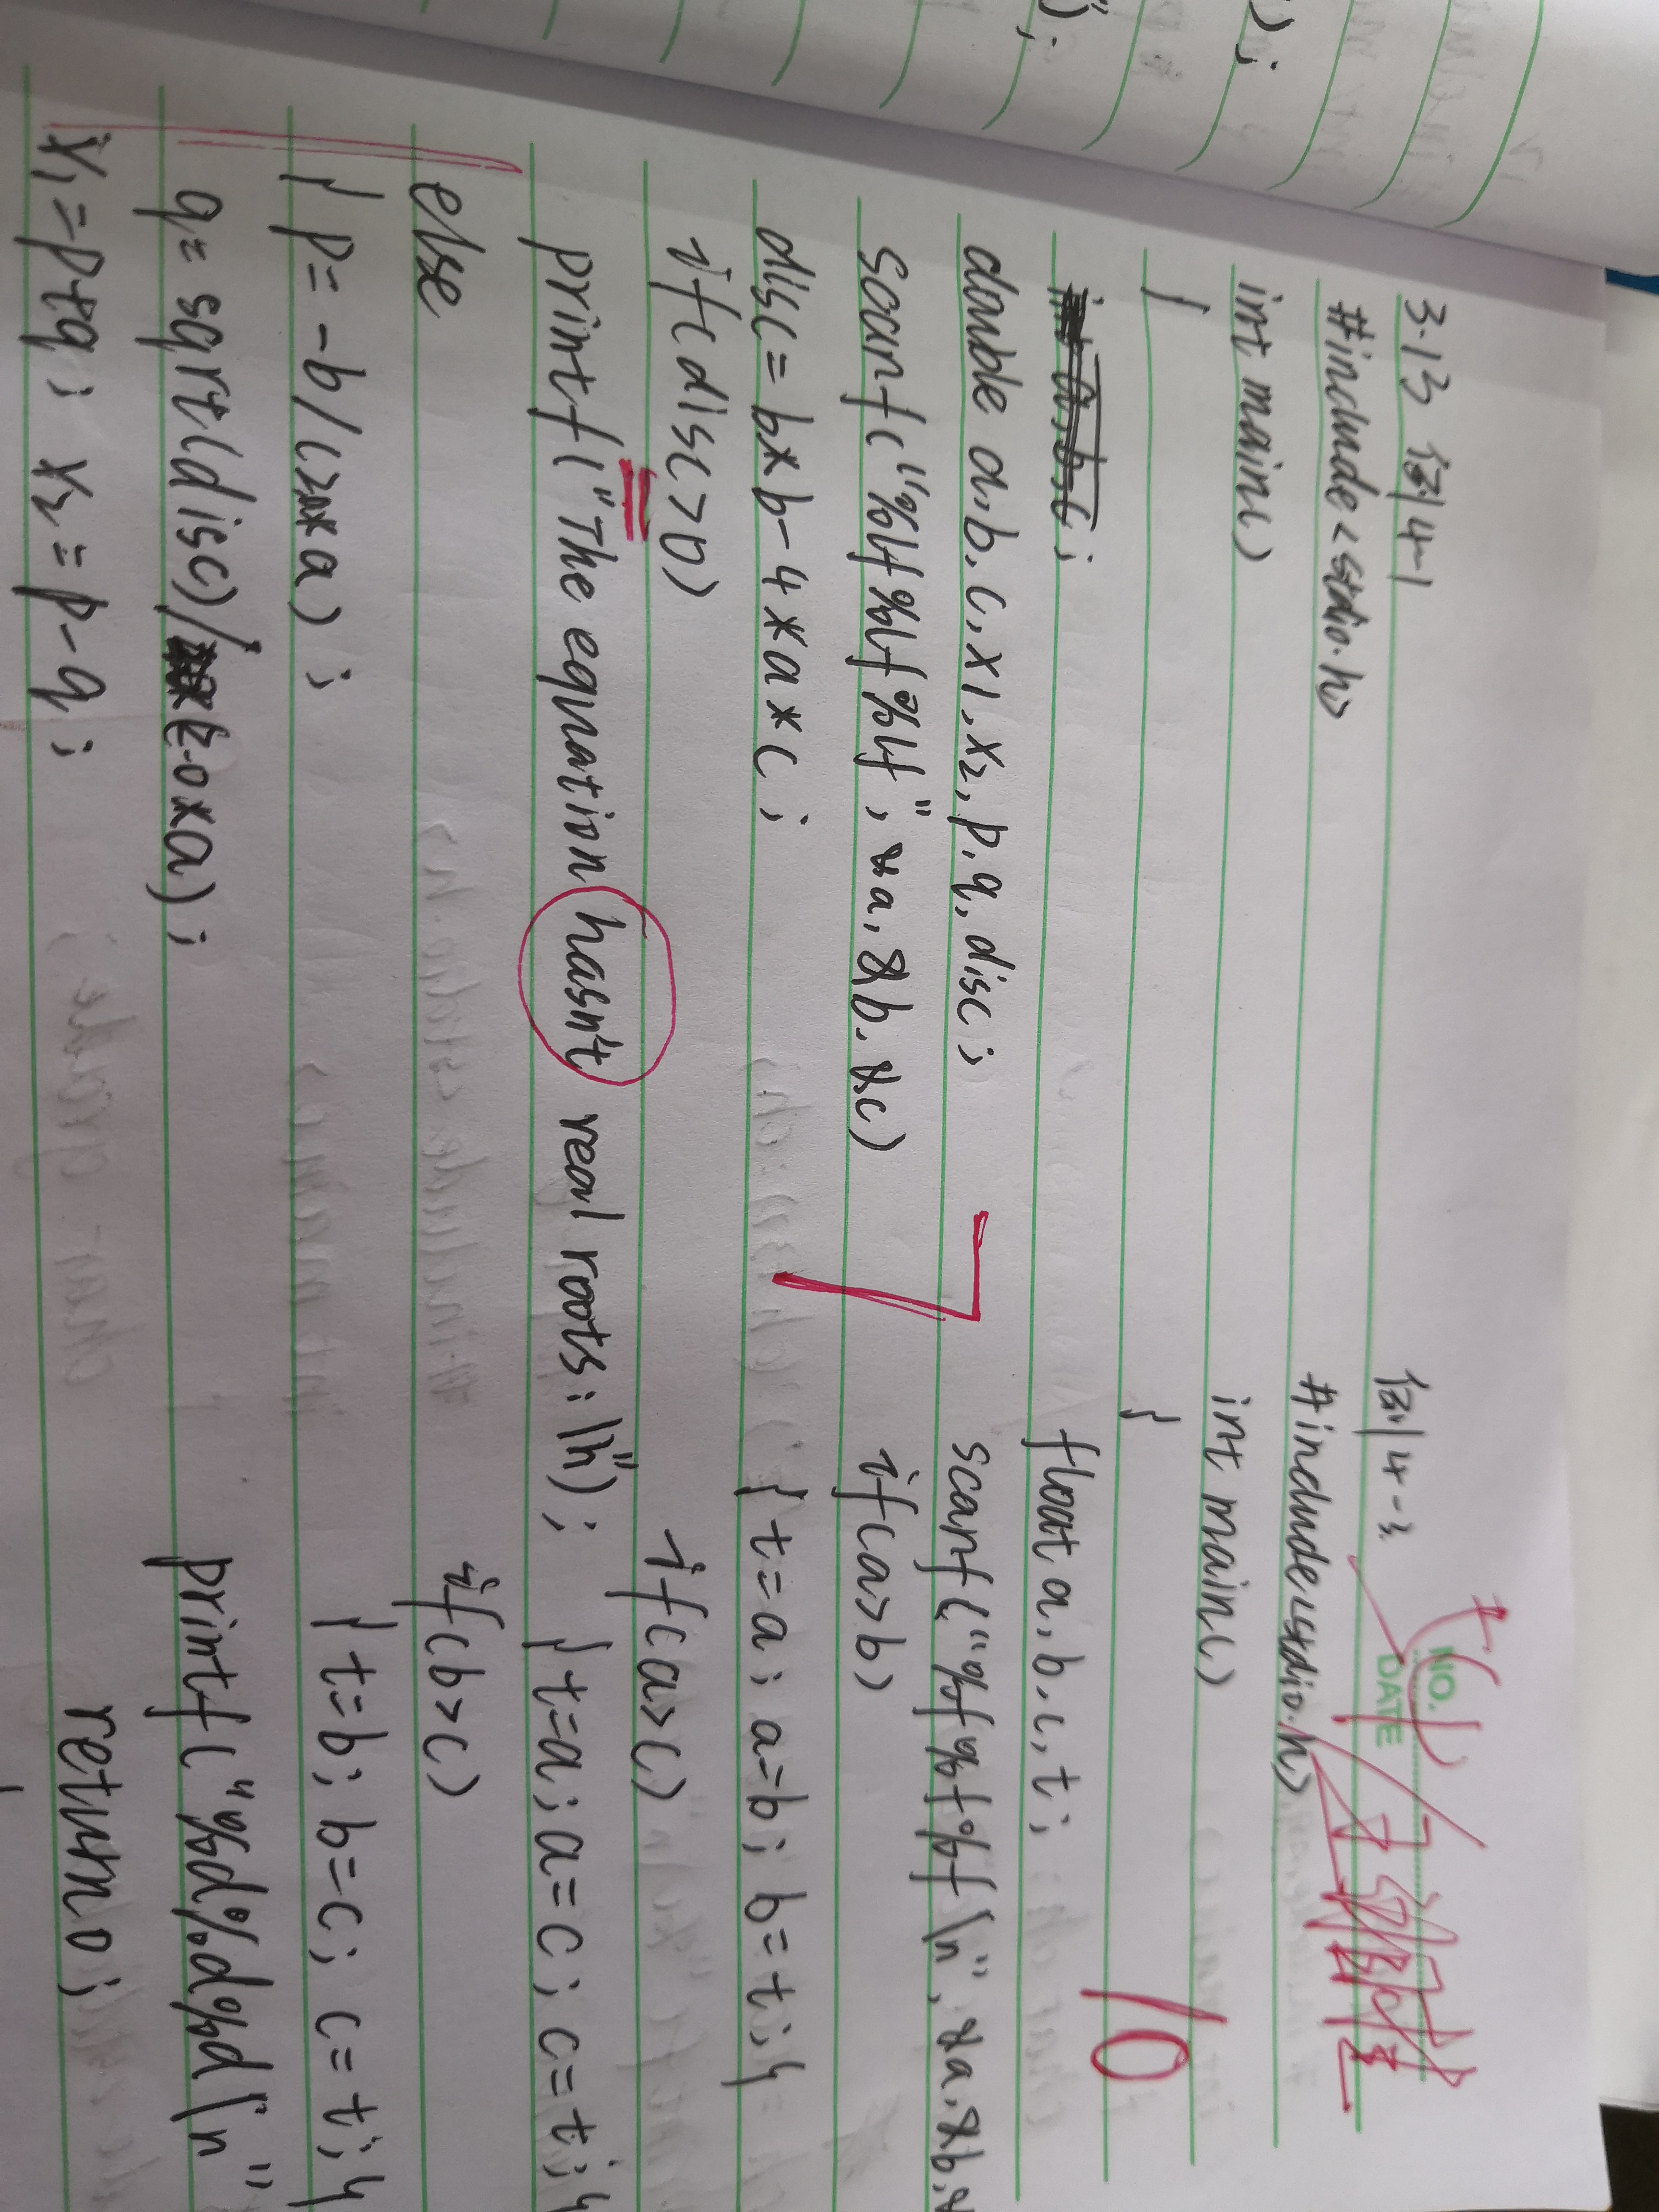 3.13 例4-1
#include<stdio.h>
int main()
{
double a.b.c.x1.x2.p.q.disc;
scanf("%lf%lf%lf",&a.&b.&c)
disc=b*b-4*a*c;
if(disc>0)
printf("The equation hasn't real roots:\n");
else
{p=-b/(2*a);
q=sqrt(disc)/(2.0*a);
x1=p+q; x2=p-q;
NO.
DATE
例4-3
#include<stdio.h>
int main()
{
float a.b.c.t;
scanf("%f%f%f\n".&a.&b.&
if(a>b)
{t=a;a=b;b=t;}
if(a>c)
{t=a;a=c;c=t;}
if(b>c)
{t=b;b=c;c=t;}
printf("%d%d%d\n"
return 0;
10
);
");